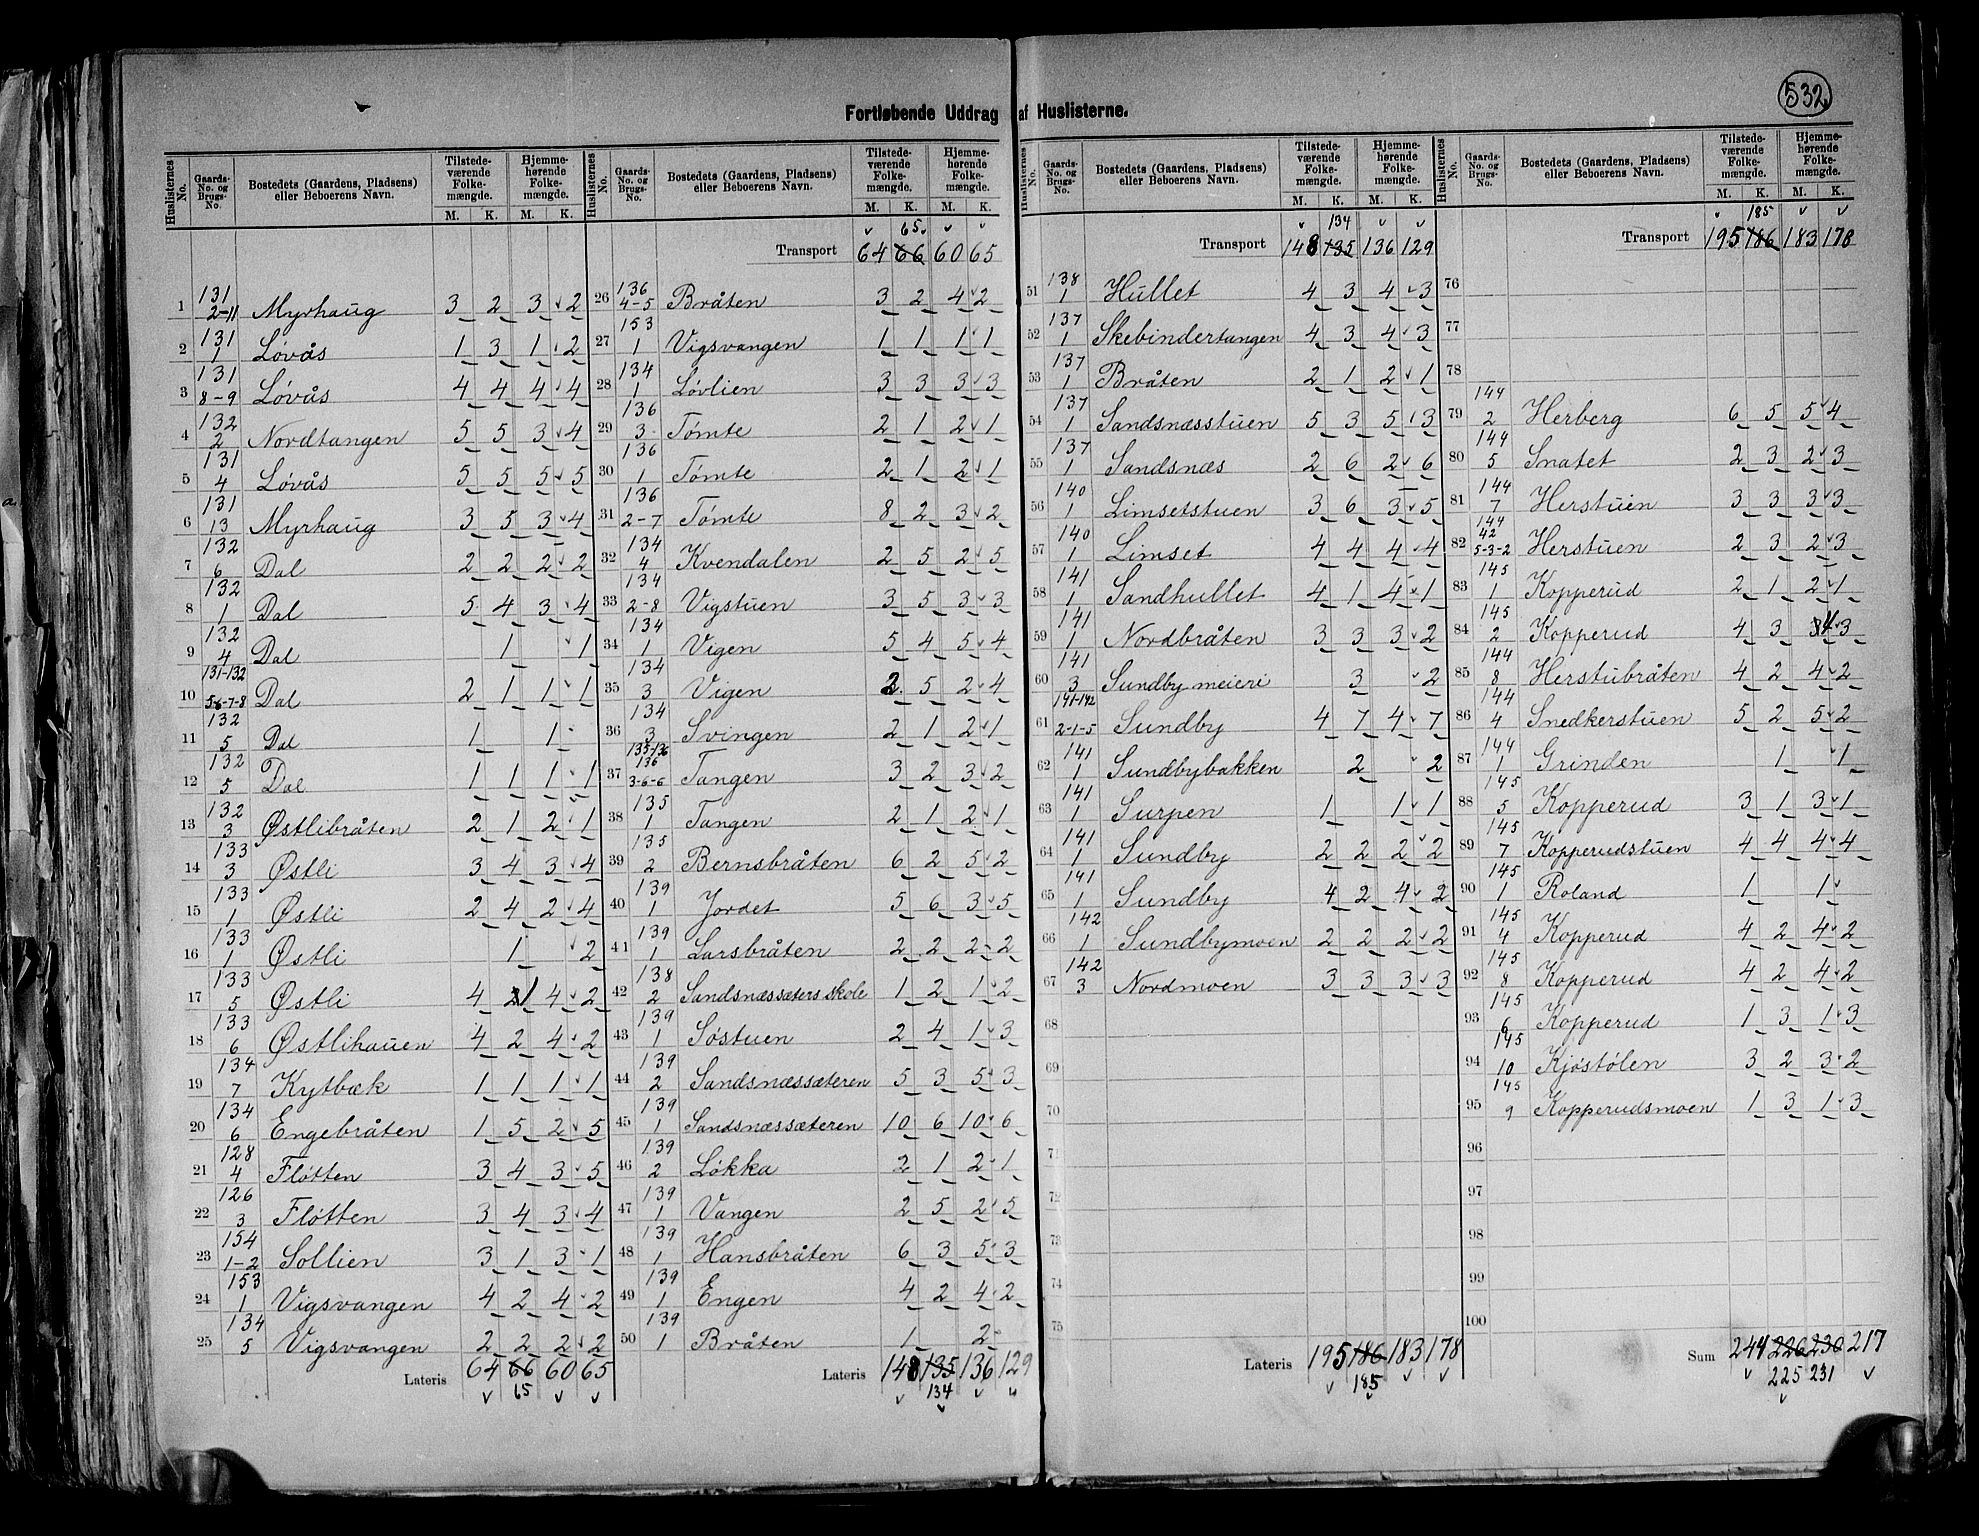 532
Fortløbende Uddrag af Huslisterne.
Huslisternes No. | Gaards-No. og Brugs-No. | Bostedets (Gaardens, Pladsens) eller Beboerens Navn. | Tilstedeværende Folkemængde. M. K. | Hjemmehørende Folkemængde. M. K.
1 131 2-11 Myrhaug 3 2 3 2
2 131 1 Løvås 1 3 1 2
3 131 8-9 Løvås 4 4 4 4
4 132 2 Nordtangen 5 5 3 4
5 131 4 Løvås 5 5 5 5
6 131 13 Myrhaug 3 5 3 4
7 132 6 Dal 2 2 2 2
8 132 1 Dal 5 4 3 4
9 132 4 Dal 1 1
10 131-132 5-6-7-8 Dal 2 1 1 1
11 132 5 Dal 1 1
12 132 5 Dal 1 1 1 1
13 132 3 Østlibråten 2 1 2 1
14 133 3 Østli 3 4 3 4
15 133 1 Østli 2 4 2 4
16 133 1 Østli 1 2
17 133 5 Østli 4 1 4 2
18 133 6 Østlihauen 4 2 4 2
19 134 7 Kytbæk 1 1 1 1
20 134 6 Engebråten 1 5 2 5
21 128 4 Fløtten 3 4 3 5
22 126 3 Fløtten 3 4 3 4
23 154 1-2 Sollien 3 1 3 1
24 153 1 Vigsvangen 4 2 4 2
25 134 5 Vigsvangen 2 2 2 2
Lateris 64 66 60 65
65
Huslisternes No. | Gaards-No. og Brugs-No. | Bostedets (Gaardens, Pladsens) eller Beboerens Navn. | Tilstedeværende Folkemængde. M. K. | Hjemmehørende Folkemængde. M. K.
65
Transport 64 66 60 65
26 136 4-5 Bråten 3 2 4 2
27 153 1 Vigsvangen 1 1 1 1
28 134 1 Løvlien 3 3 3 3
29 136 3 Tømte 2 1 2 1
30 136 1 Tømte 2 1 2 1
31 136 2-7 Tømte 8 2 3 2
32 134 4 Kvendalen 2 5 2 5
33 134 2-8 Vigstuen 3 5 3 3
34 134 1 Vigen 5 4 5 4
35 134 3 Vigen 2 5 2 4
36 134 3 Svingen 2 1 2 1
37 135-136 136 3-6-6 Tangen 3 2 3 2
38 135 1 Tangen 2 1 2 1
39 135 2 Bernsbråten 6 2 5 2
40 139 1 Jordet 5 6 3 5
41 139 1 Larsbråten 2 2 2 2
42 138 2 Sandsnæssæters skole 1 2 1 2
43 139 1 Søstuen 2 4 1 3
44 139 2 Sandsnæssæteren 5 3 5 3
45 139 1 Sandsnæssæteren 10 6 10 6
46 139 2 Løkka 2 1 2 1
47 139 1 Vangen 2 5 2 5
48 139 1 Hansbråten 6 3 5 3
49 139 1 Engen 4 2 4 2
50 139 1 Bråten 1 2
Lateris 148 135 136 129
134
Huslisternes No. | Gaards-No. og Brugs-No. | Bostedets (Gaardens, Pladsens) eller Beboerens Navn. | Tilstedeværende Folkemængde. M. K. | Hjemmehørende Folkemængde. M. K.
134
Transport 148 135 136 129
51 138 1 Hullet 4 3 4 3
52 137 1 Skebindertangen 4 3 4 3
53 137 1 Bråten 2 1 2 1
54 137 1 Sandsnæsstuen 5 3 5 3
55 137 1 Sandsnæs 2 6 2 6
56 140 1 Limsetstuen 3 6 3 5
57 140 1 Limset 4 4 4 4
58 141 1 Sandhullet 4 1 4 1
59 141 1 Nordbråten 3 3 3 2
60 141 3 Sundby meieri 3 2
61 141-142 2-1-5 Sundby 4 7 4 7
62 141 1 Sundbybakken 2 2
63 141 1 Surpen 1 1 1
64 141 1 Sundby 2 2 2 2
65 141 1 Sundby 4 2 4 2
66 142 1 Sundbymoen 2 2 2 2
67 142 3 Nordmoen 3 3 3 3
68
69
70
71
72
73
74
75
Lateris 195 186 183 178
185
Huslisternes No. | Gaards-No. og Brugs-No. | Bostedets (Gaardens, Pladsens) eller Beboerens Navn. | Tilstedeværende Folkemængde. M. K. | Hjemmehørende Folkemængde. M. K.
185
Transport 195 186 183 178
76
77
78
79 144 2 Herberg 6 5 5 4
80 144 5 Snatet 2 3 2 3
81 144 7 Herstuen 3 3 3 3
82 144 42 5-3-2 Herstuen 2 3 2 3
83 145 1 Kopperud 2 1 2 1
84 145 2 Kopperud 4 3 4 3
85 144 8 Herstubråten 4 2 4 2
86 144 4 Snedkerstuen 5 2 5 2
87 144 1 Grinden 1 1
88 145 5 Kopperud 3 1 3 1
89 145 7 Kopperudstuen 4 4 4 4
90 145 1 Roland 1 1
91 145 4 Kopperud 4 2 4 2
92 145 8 Kopperud 4 2 4 2
93 145 6 Kopperud 1 3 1 3
94 145 10 Kjøstølen 3 2 3 2
95 145 9 Kopperudsmoen 1 3 1 3
96
97
98
99
100
Sum 244 226 230 217
225 231